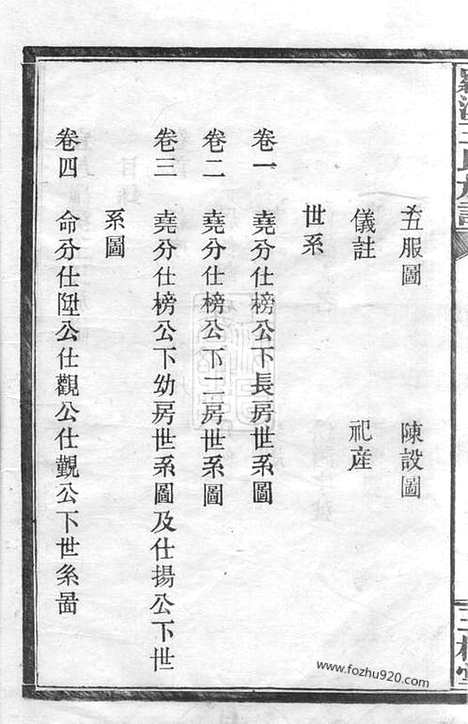 五服圖　陳設圖
儀註　祀產
世系
卷一　堯分仕榜公下長房世系圖
卷二　堯分仕榜公下二房世系圖
卷三　堯分仕榜公下幼房世系圖及仕揚公下世
系圖
卷四　命分仕陞公仕觀公仕覲公下世系啚
www.fozhu920.com